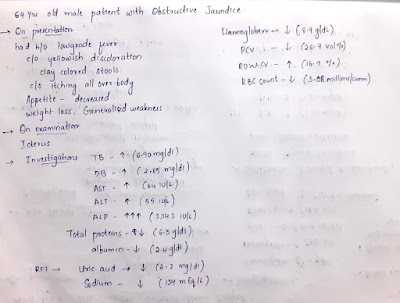 64 Yrs old male patient with Obstructive Jaundice.
→ On presentation
had h/o lowgrade fever
c/o yellowish discoloration
clay colored stools
c/o itching all over body
Appetite - decreased
weight loss, Generalised weakness
→ On examination
Icterus
→ Investigations
TB - ↑ (6.90 mg/dl)
DB - ↑ (mg/dl)
AST - ↑ (64 IU/L)
ALT - ↑ (55 IU/L)
ALP - ↑↑↑ (IU/L)
Total proteins - ↑↓ (6.3 g/dl)
albumin - ↓ (2.4 g/dl)
RFT → Uric acid → ↓ (2.2 mg/dl)
Sodium - ↓ (134 mEq/L)
Haemoglobin → ↓ (8.9 g/dl)
PCV - ↓ (26.7 vol%)
RDW-CV - ↑ (16.9 %)
RBC count - ↓ (3.08 millions/cumm)